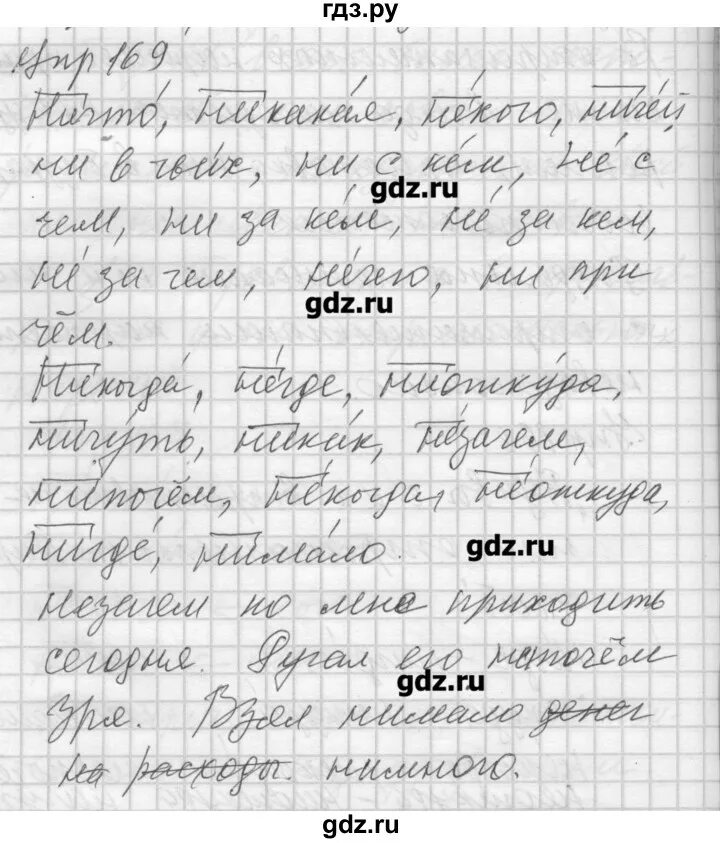 гдз.ру
Упр 169
Ничто́, никака́я, не́кого, ниче́й
ни в чьи́х, ни с ке́м, не́ с
gdz.ru
чем, ни за ке́м, не́ за кем,
не́ за чем, не́чего, ни при
gdz.ru
чём.
Никогда́, не́где, ниотку́да,
ничу́ть,ника́к, не́зачем,
нипочём, не́когда, не́откуда,
нигде́, нима́ло.
gdz.ru
Незачем ко мне приходить
сегодня. Ругал его нипочём
gdz.ru
зря. Взял нимало денег
на расходы. нимного.
gdz.ru